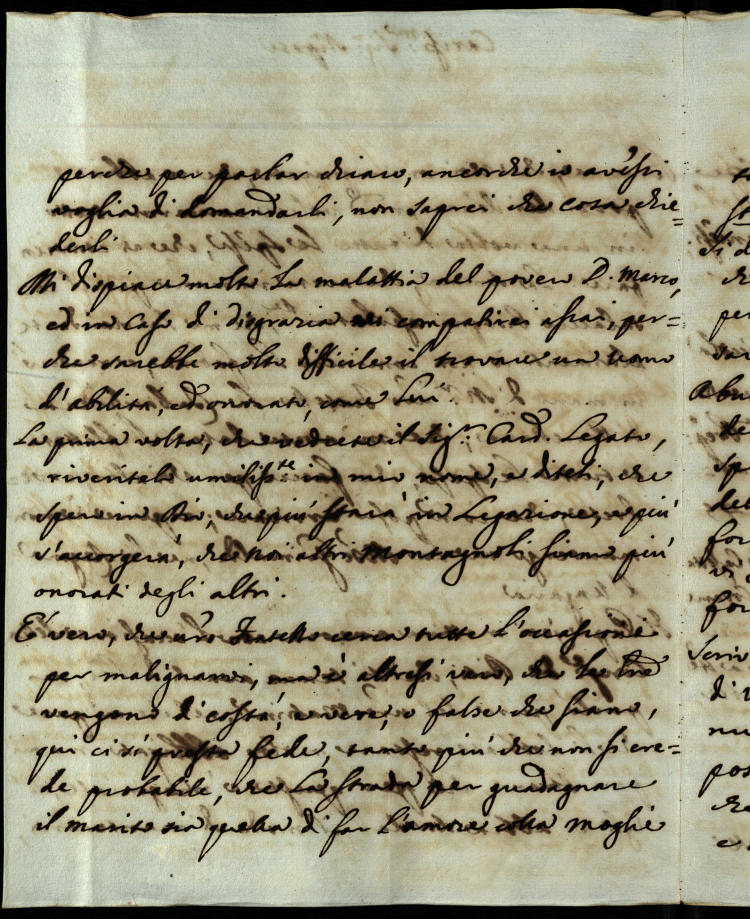 perche per parlar chiaro, ancorche io avessi
voglia di domandarli, non saprei che cosa chie=
derli
Mi dispiace molto la malattia del povero D. Marco,
ed in caso di disgrazia vi compatirei assai, per=
che sarebbe molto difficile il trovare un uomo
d'abilità, ed onorato, come Lui.
La prima volta, che vedrete il Sig.r Card. Legato,
riveritelo umiliss.te in mio nome, e diteli, che
spero in Dio, che più starà in Legazione, e più
s'accorgerà, che noi altri Montagnoli siamo più
onorati degli altri.
E' vero, che vro Fratello cerca tutte l'occasioni
per malignarvi, ma è altresì vero, che le lre
vengono di costà, e vere, o false che siano,
qui ci si presta fede, tanto più che non si cre=
de probabile, che la strada per guadagnare
il marito sia quella di far l'amore colla moglie